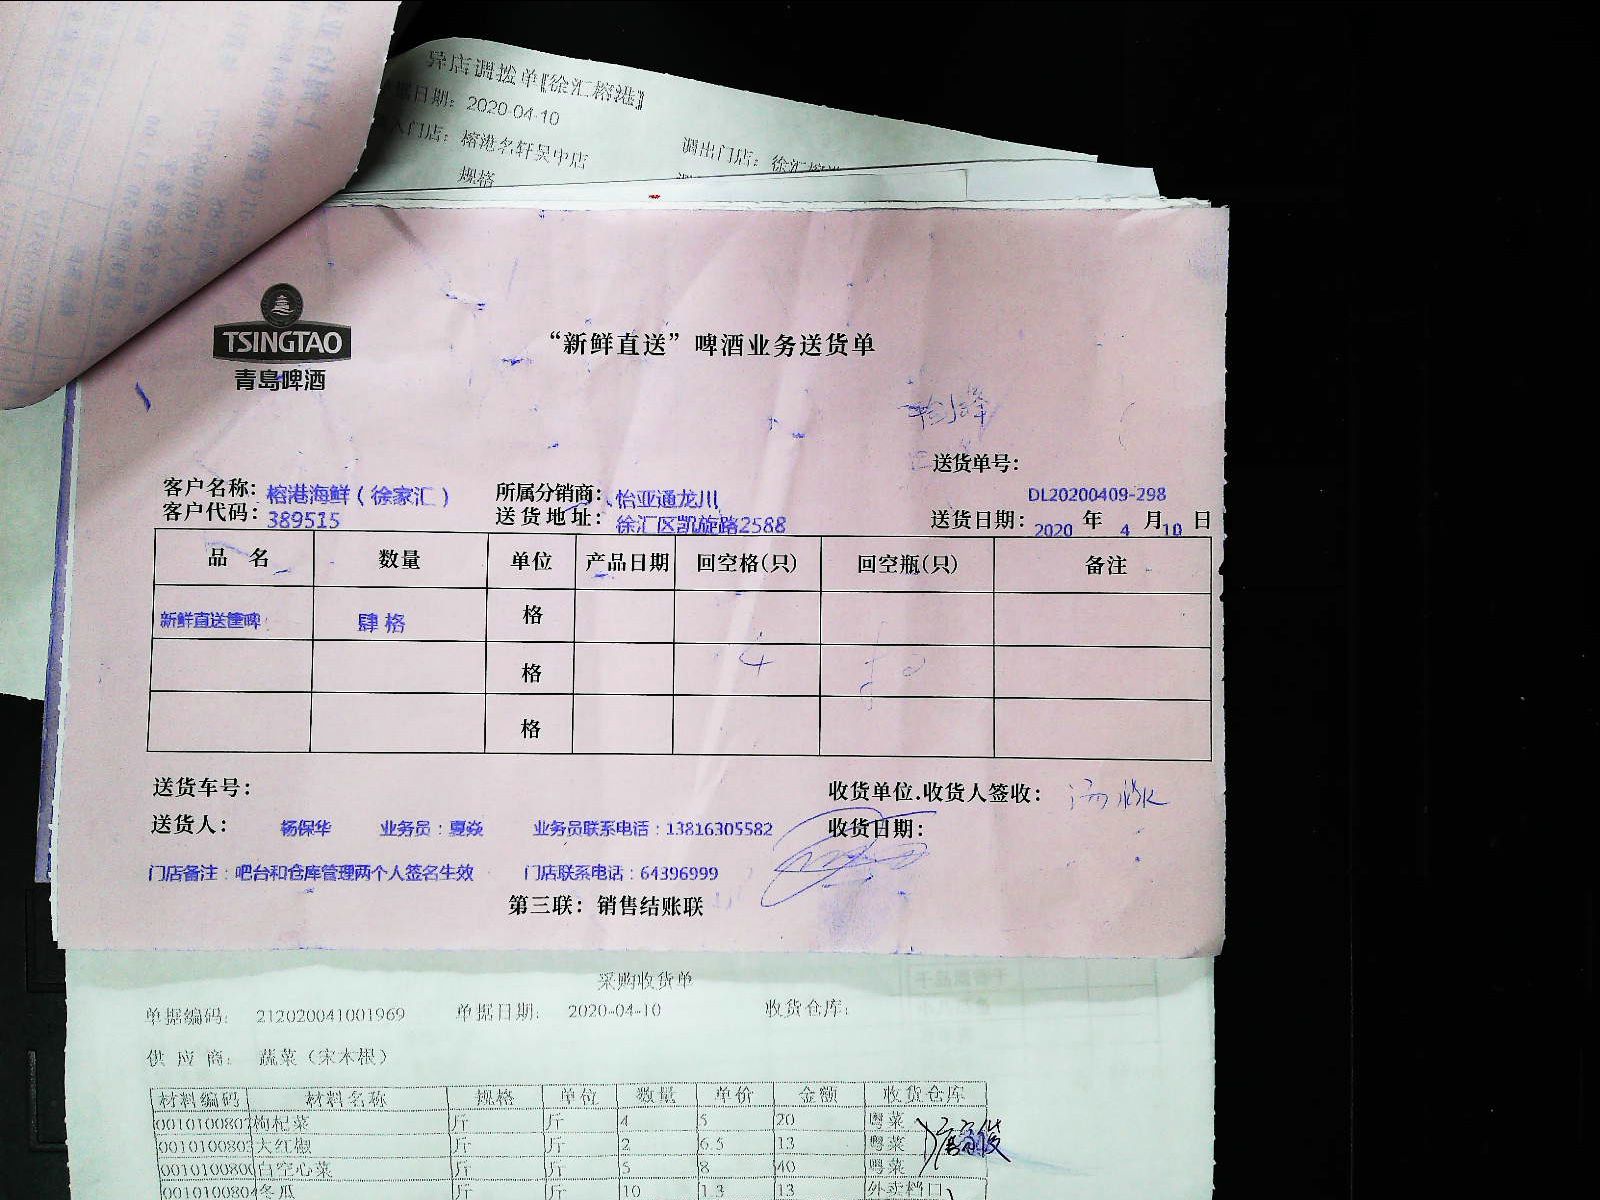 异店调拨单【徐汇榕港】
据日期: 2020-04-10
入门店: 榕港名轩吴中店 调出门店: 徐汇榕港
规格
TSINGTAO
青島啤酒
“新鲜直送”啤酒业务送货单
送货单号:
DL20200409-298
客户名称: 榕港海鲜(徐家汇) 所属分销商: 怡亚通龙川
客户代码: 389515 送货地址: 徐汇区凯旋路2588 送货日期: 2020 年 4 月 10 日
品 名 数量 单位 产品日期 回空格(只) 回空瓶(只) 备注
新鲜直送筐啤 肆格 格
格 4
格
送货车号: 收货单位.收货人签收:
送货人: 杨保华 业务员:夏焱 业务员联系电话:13816305582 收货日期:
门店备注:吧台和仓库管理两个人签名生效 门店联系电话:64396999
第三联: 销售结账联
采购收货单
单据编码: 212020041001969 单据日期: 2020-04-10 收货仓库:
供应商: 蔬菜(宋木根)
材料编码 材料名称 规格 单位 数量 单价 金额 收货仓库
0010100807 枸杞菜 斤 斤 4 5 20 粤菜
0010100803 大红椒 斤 斤 2 6.5 13 粤菜
0010100800 白空心菜 斤 斤 5 8 40 粤菜
0010100804 冬瓜 斤 斤 10 1.3 13 外卖档口